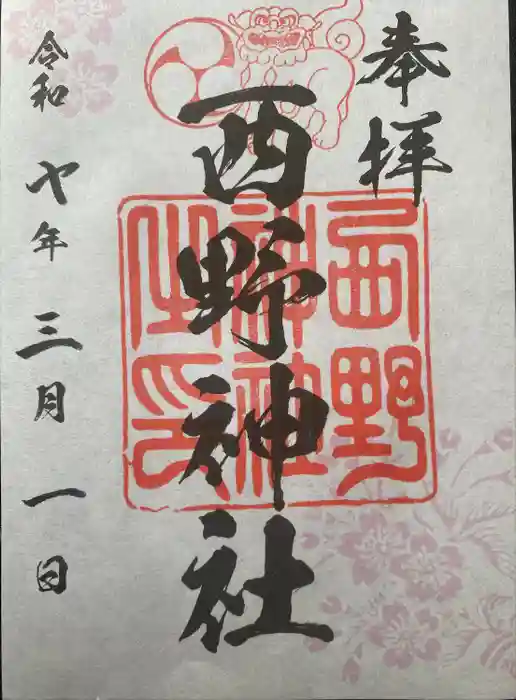 奉拝
西野神社
西野
神社
之印
令和七年三月一日